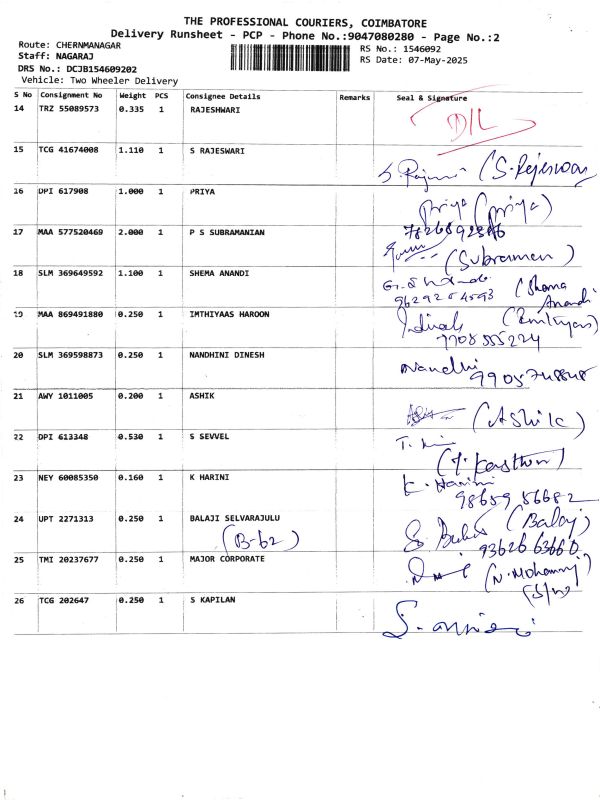 THE PROFESSIONAL COURIERS, COIMBATORE
Delivery Runsheet - PCP - Phone No.:9047080280 - Page No.:2
Route: CHERNMANAGAR
RS No.: 1546092
Staff: NAGARAJ
RS Date: 07-May-2025
DRS No.: DCJB154609202
Vehicle: Two Wheeler Delivery
S No Consignment No Weight PCS Consignee Details Remarks Seal & Signature
14 TRZ 55089573 0.335 1 RAJESHWARI D/L
15 TCG 41674008 1.110 1 S RAJESWARI
16 DPI 617908 1.000 1 PRIYA Priya (priya)
17 MAA 577520469 2.000 1 P S SUBRAMANIAN
(Subramen)
18 SLM 369649592 1.100 1 SHEMA ANANDI
(Shama
Anandi
19 MAA 869491880 0.250 1 IMTHIYAAS HAROON
7708555224
20 SLM 369598873 0.250 1 NANDHINI DINESH Nandhi
21 AWY 1011005 0.200 1 ASHIK (Ashik)
22 DPI 613348 0.530 1 S SEVVEL
23 NEY 60085350 0.160 1 K HARINI K. Harini
98659 56682
24 UPT 2271313 0.250 1 BALAJI SELVARAJULU (Balaj)
(B-62) 93626 63660
25 TMI 20237677 0.250 1 MAJOR CORPORATE
26 TCG 202647 0.250 1 S KAPILAN